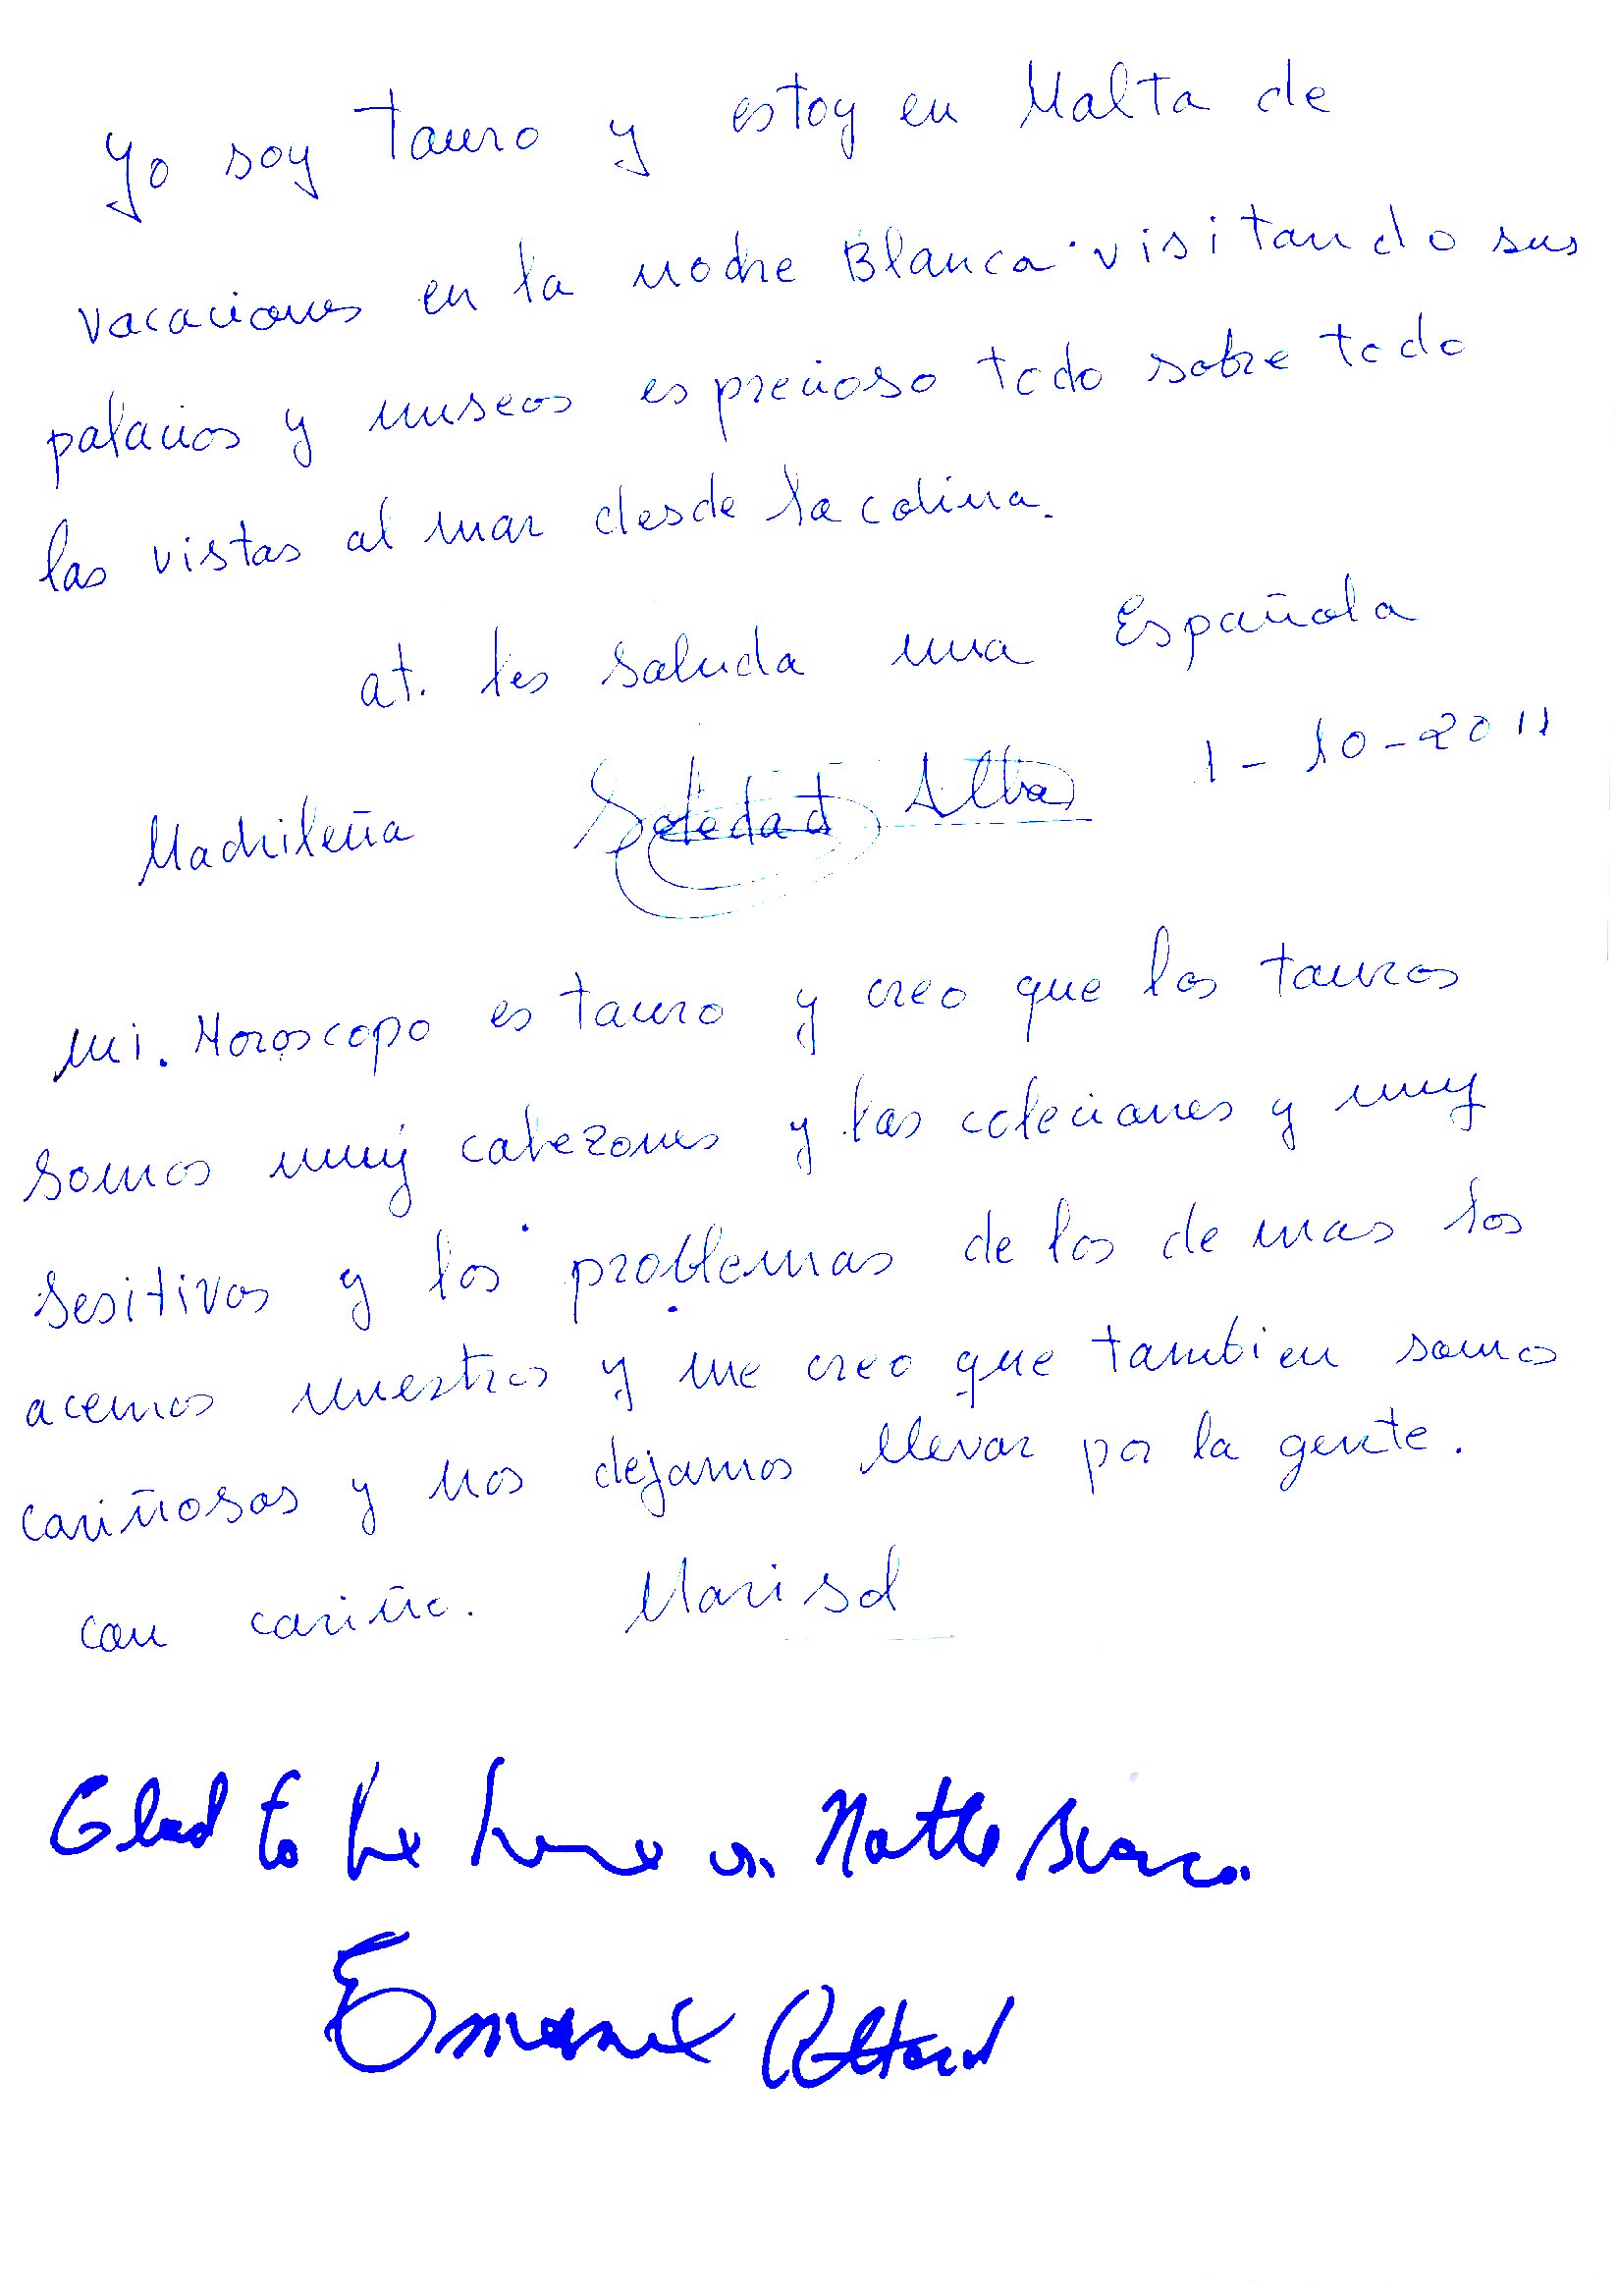 Yo soy tauro y estoy en Malta de
vacaciones en la noche Blanca visitando sus
palacios y museos es precioso todo sobre todo
las vistas al mar desde la colina.
at. les saluda una Española
Madrileña Soledad Alba 1-10-2011
Mi. Horoscopo es tauro y creo que los tauros
somos muy cabezones y las coleciones y muy
sesitivos y los problemas de los de mas los
acemos nuestros y me creo que tambien somos
cariñosos y nos dejamos llevar por la gente.
con cariño. Marisol
Glad to be here in Notte Bianca.
Emanuel Attard